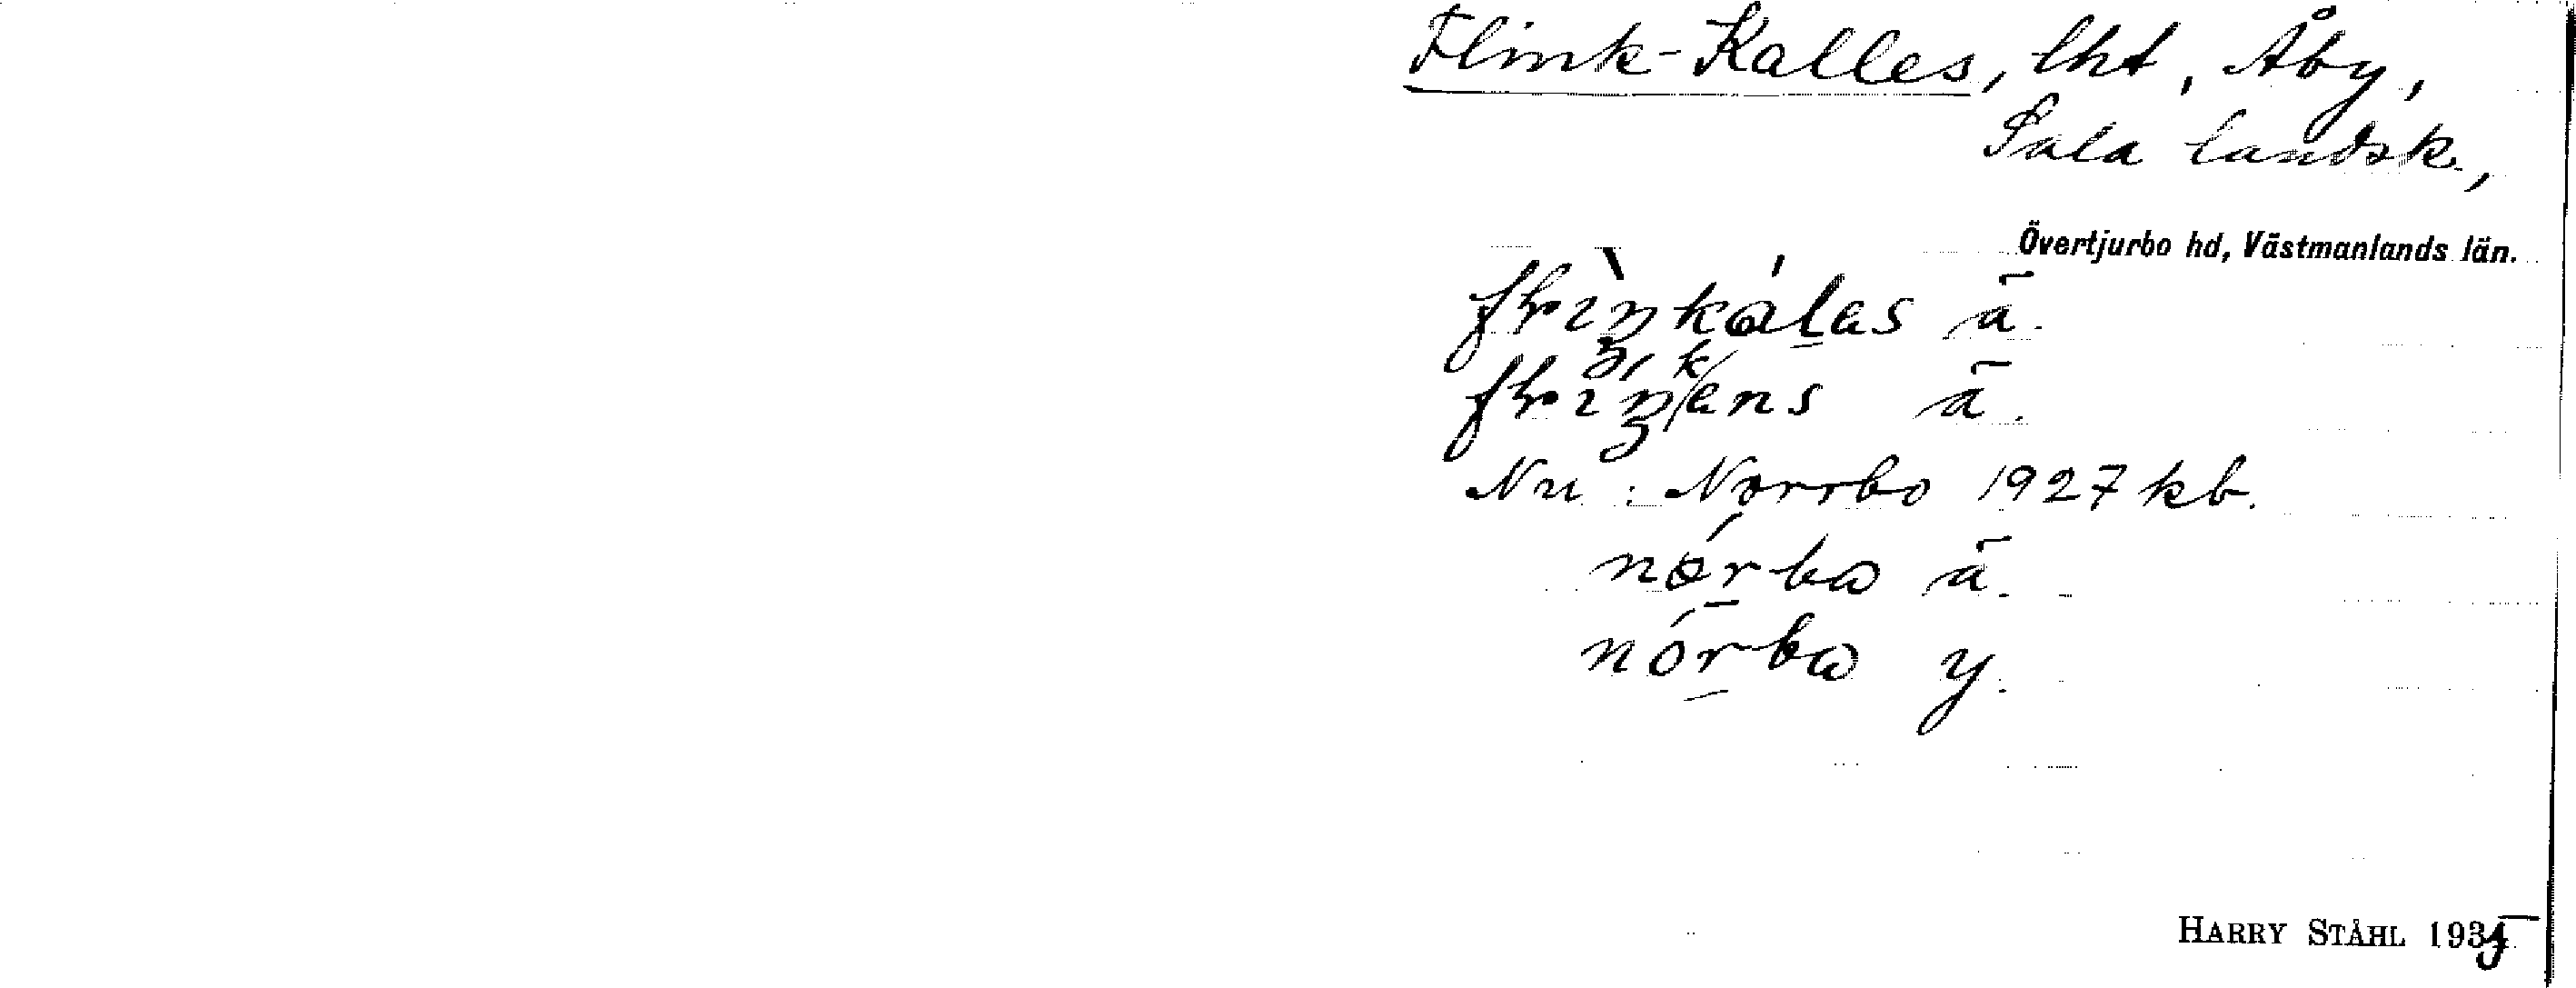 Flink-Kalles, lht, Åby,
Sala landsk.,
Övertjurbo hd, Västmanlands län.
ā.
ā.
Nu: Norrbo 1927 kb.
nórbω ā.
nórbω y.
HARRY STÅHL 1935